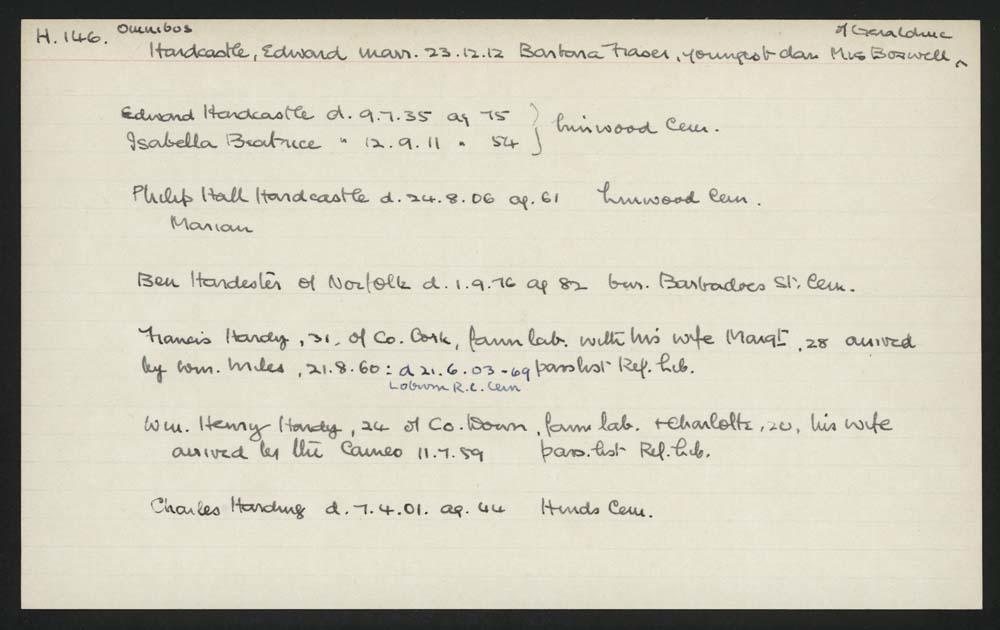 H.146. Omnibos
Hardcastle, Edward marr. 23.12.12 Barbara Fraser, youngest dau Mrs Boswell ^ of Geraldine
Edward Hardcastle d. 9.7.35 ag 75 } Linwood Cem.
Isabella Beatrice " 12.9.11 " 54
Philip Hall Hardcastle d. 24.8.06 ag. 61 Linwood Cem.
Marian
Ben Hardester of Norfolk d. 1.9.76 ag 82 bur. Barbadoes St. Cem.
Francis Hardy, 31, of Co. Cork, farm lab. with his wife Margt, 28 arrived
by Wm. Miles, 21.8.60 : d 21.6.03 - 69 pass list Ref. Lib.
Loburn R.C. Cem
Wm. Henry Hardy, 24 of Co. Down, farm lab. + Charlotte, 20, his wife
arrived by the Cameo 11.7.59 pass. list Ref. Lib.
Charles Harding d. 7.4.01. ag. 44 Hinds Cem.